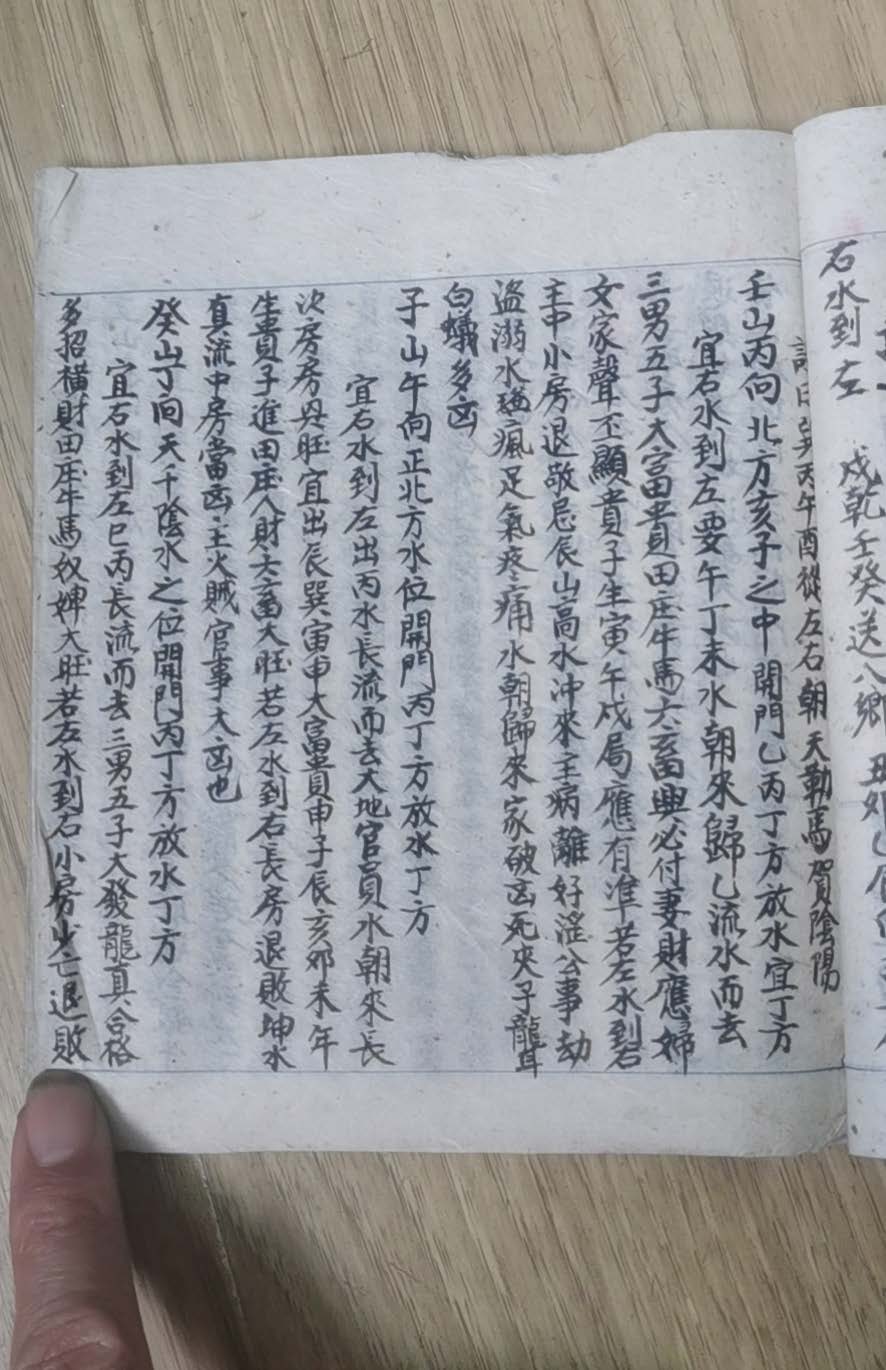 右水到左　戌乾壬癸送八鄉
丙午酉從左右朝天勒馬賀陰陽
壬山丙向北方亥子之中開門乙丙丁方放水宜丁方
宜右水到左要午丁未水朝來歸乙流水而去
三男五子大富貴田庄牛馬六畜興必付妻財應婦
女家聲丕顯貴子生寅午戌局應有準若左水到右
主中小房退敬忌辰山高水冲來主病離好滛公事劫
盜溺水瘋足氣疼痛水朝歸來家破凶死夾子龍耳
白蟻多凶
子山午向正北方水位開門丙丁方放水丁方
宜右水到左出丙水長流而去大地官貢水朝來長
次房房具旺宜出辰巽寅申大富貴申子辰亥卯未年
生貴子進田庄人財六畜大旺若左水到右長房退敗坤水
真流中房當凶主火賊官事大凶也
癸山丁向天千陰水之位開門丙丁方放水丁方
宜右水到左巳丙長流而去三男五子大發龍真合格
多招橫財田庄牛馬奴婢大旺若左水到右小房少亡退敗